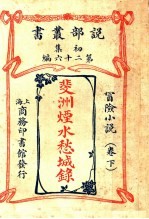 說部叢書
初集
第二十六編
冒險小說
(卷下)
斐洲煙水愁城錄
上海商務印書館發行